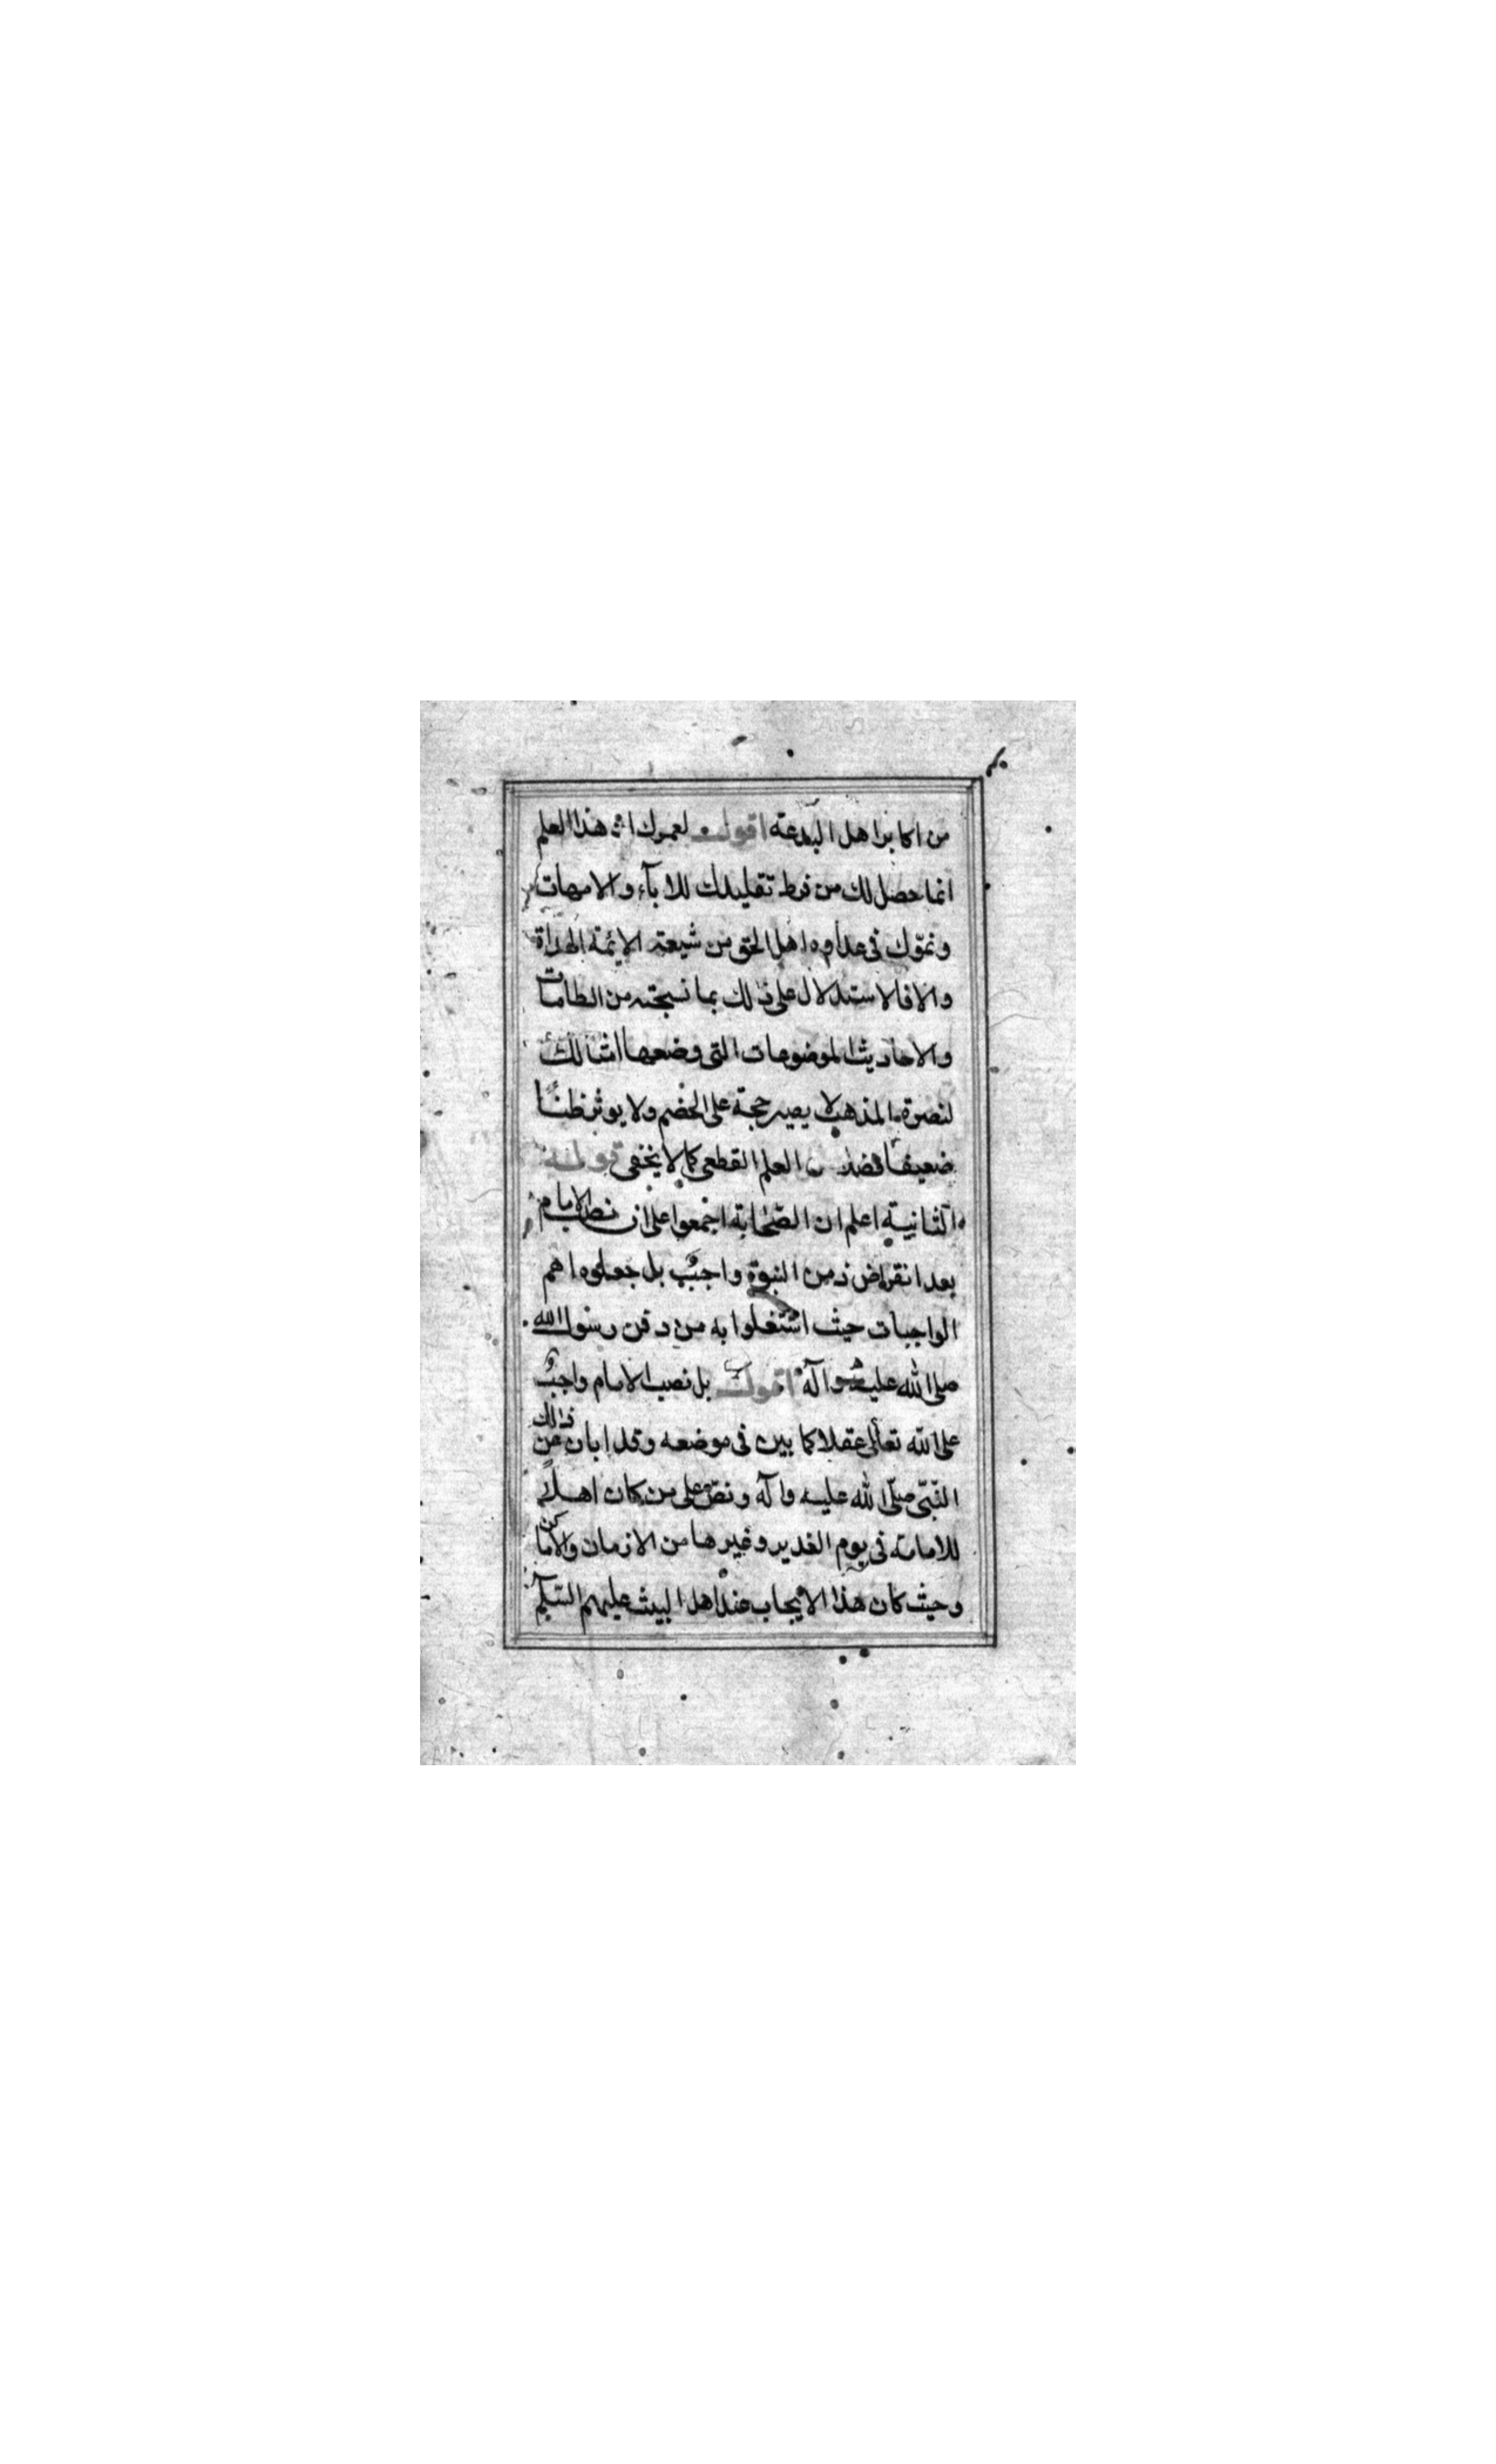 من اكابر اهل البدعة اقول لعمرك ان هذا العلم
انما حصل لك من فرط تقليدك للاباء والامهات
ونموّك فى عداوه اهل الحق من شيعة الايمة الهداة
والا فالاستدلال على ذلك بما نسجته من الطامات
والاحاديث الموضوعات التى وضعها امثالك
لنصرة المذهب لا يصير حجة على الخصم ولا يوثر ظنًا
ضعيفا فضلا العلم القطعى كما لا يخفى قوله
الثانية اعلم ان الصّحابة اجمعوا على ان نصب الامام
بعد انقراض زمن النبوة واجبٌ بل جعلوه اهم
الواجبات حيث اشتغلوا به من دفن رسول الله
صلى الله عليه وآله اقول بل نصب الامام واجبٌ
على الله تعالى عقلا كما بين فى موضعه وقد ابان عن ذلك
النّبىّ صلّى الله عليه وآله ونصّ على من كان اهلاً
للامامة فى يوم الغدير وغيرها من الازمان والاماكن
وحيث كان هذا الايجاب عند اهل البيت عليهم السّلام